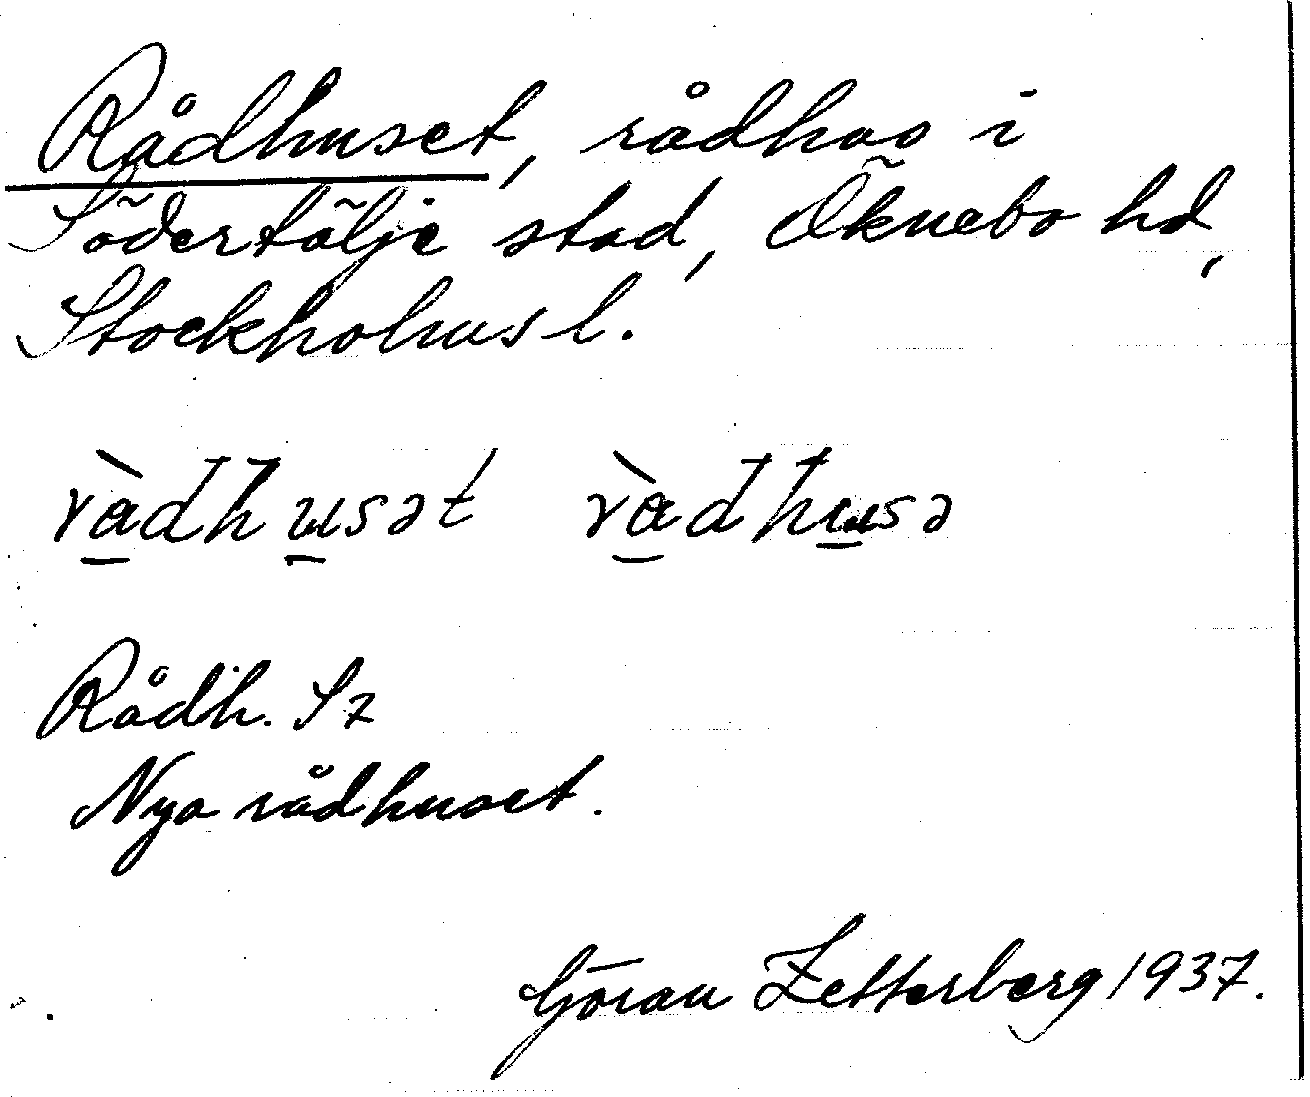 Rådhuset, rådhus i
Södertälje stad, Öknebo hd,
Stockholms l.
ràdhusət ràdhusə
Rådh. Sz
Nya rådhuset.
Göran Zetterberg 1937.